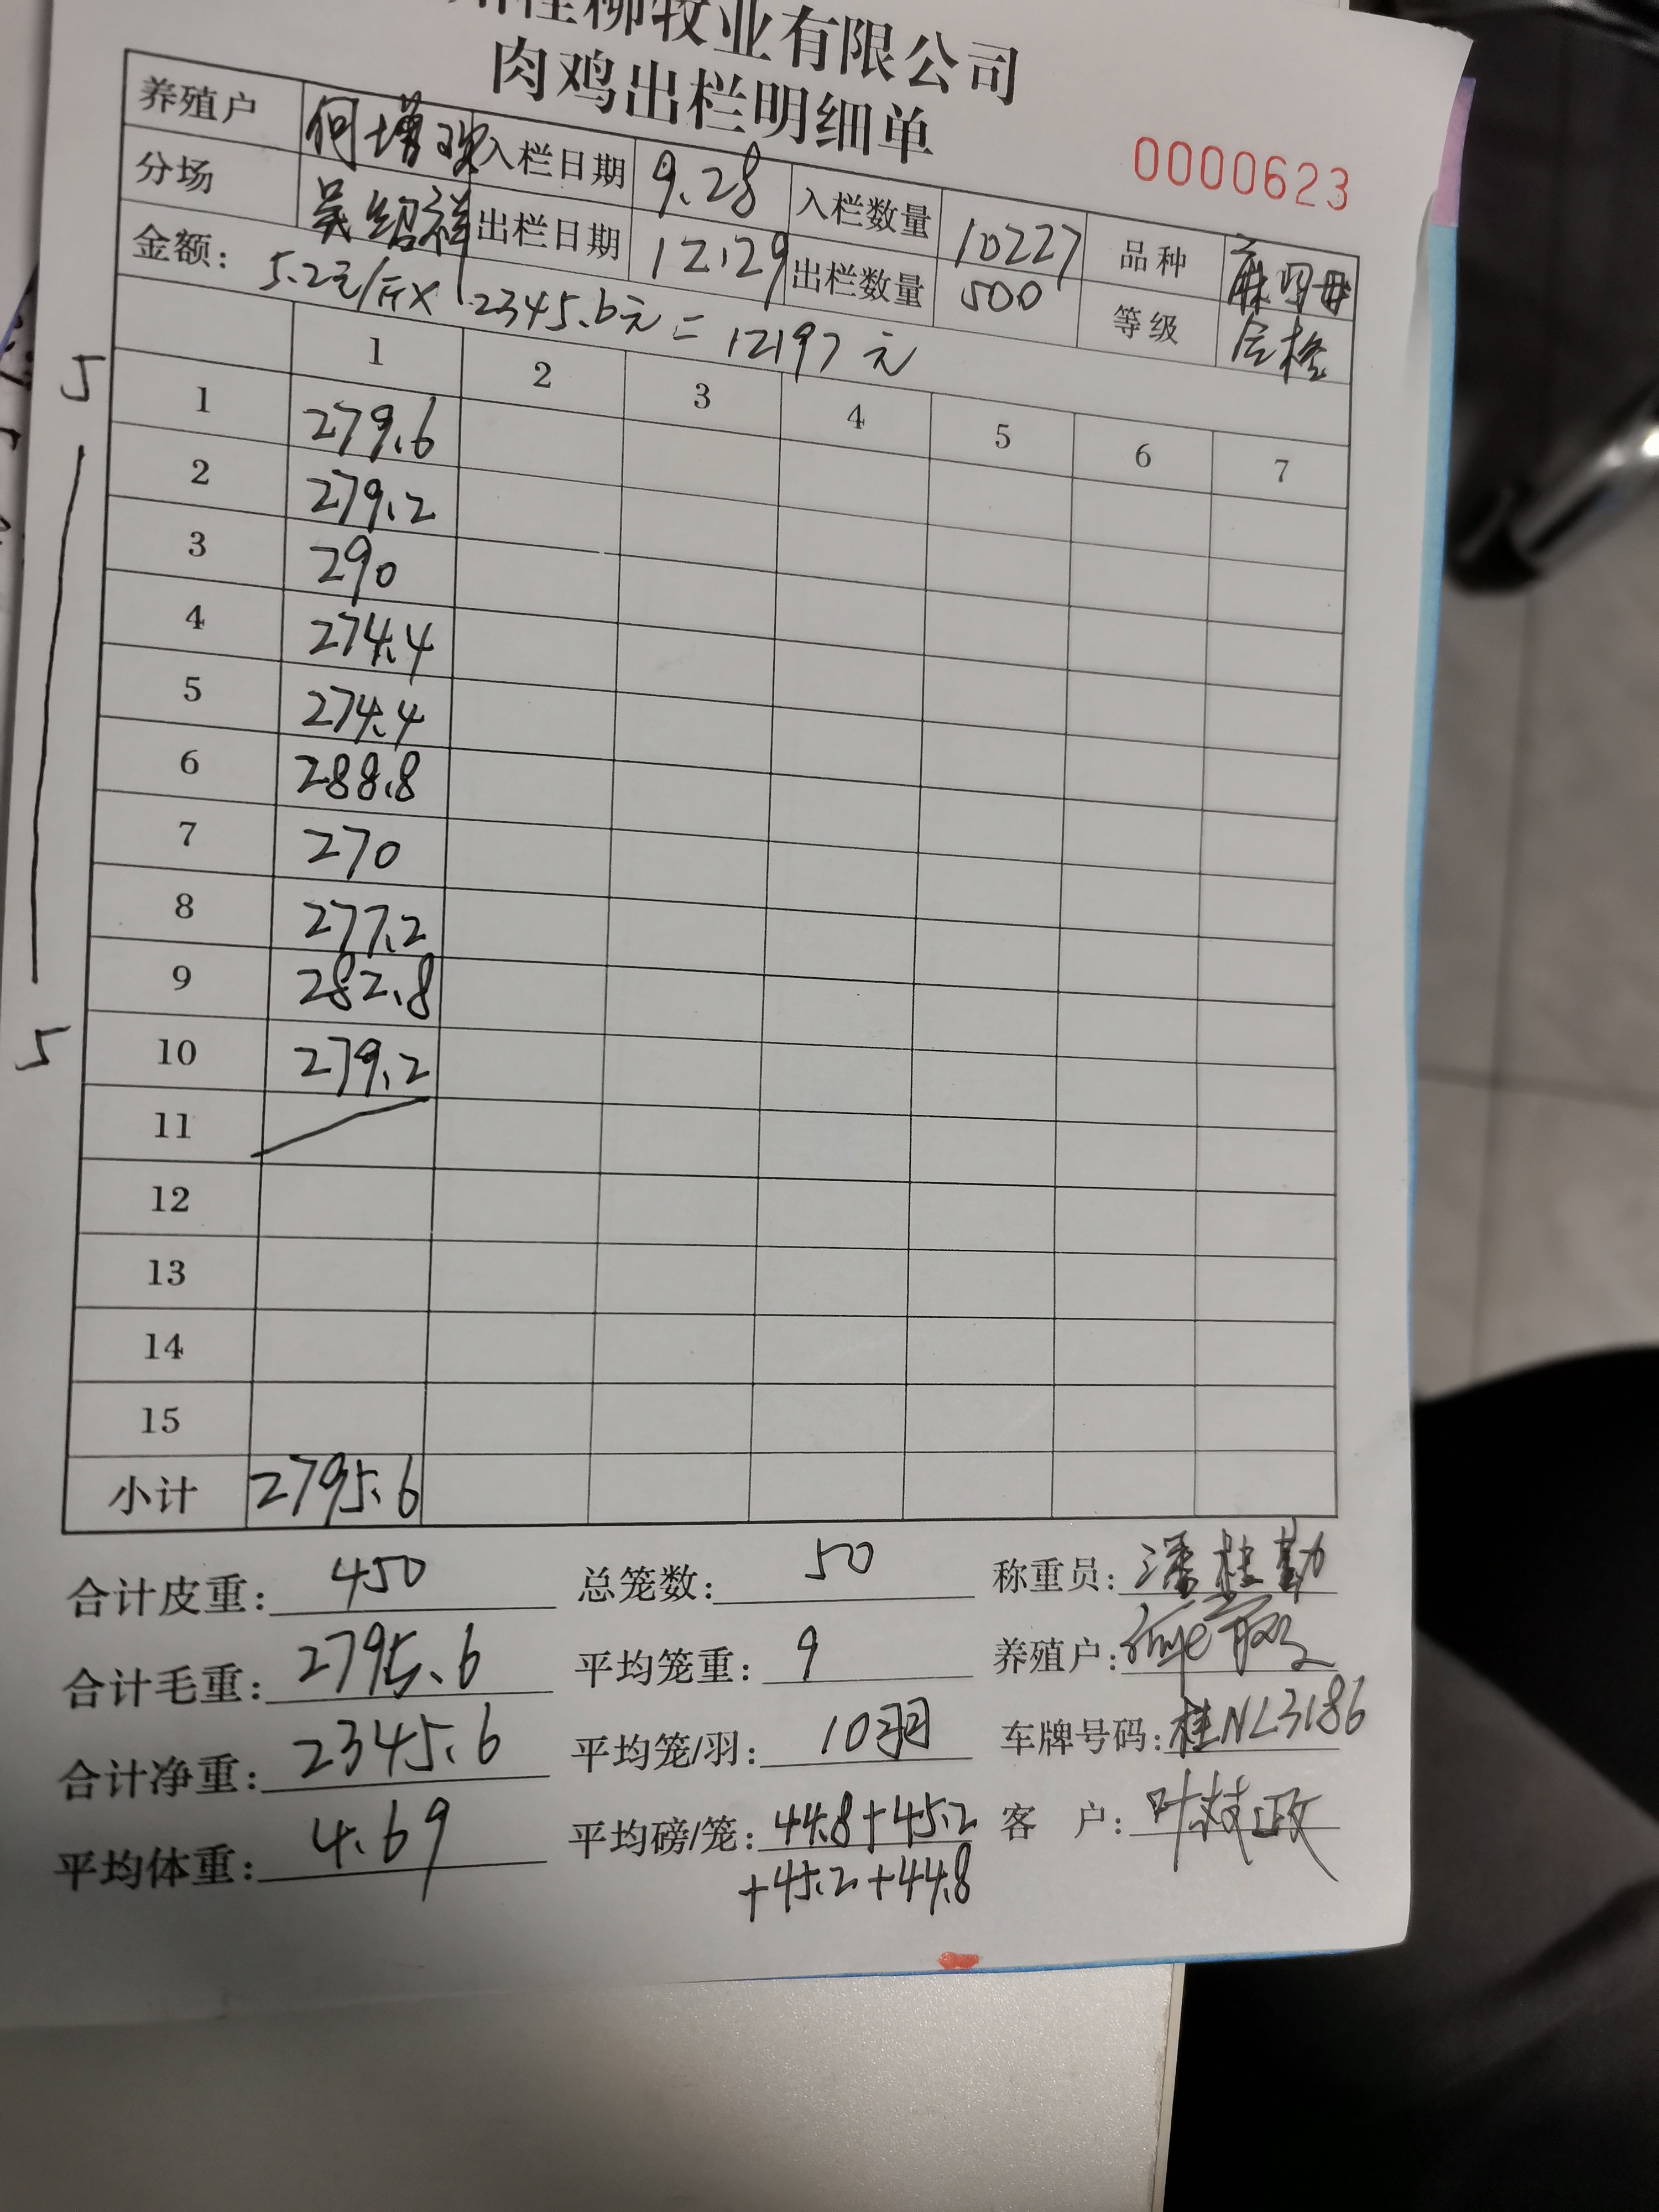 桂柳牧业有限公司
肉鸡出栏明细单
0000623
养殖户 何增欢 入栏日期 9.28 入栏数量 10227 品种 麻
分场 吴绍祥 出栏日期 12.29 出栏数量 500 等级 合格
金额: 5.2元/斤× 2345.6元 = 12197元
1 2 3 4 5 6 7
5
1 279.6
2 279.2
3 290
4 274.4
5 274.4
6 288.8
7 270
8 277.2
9 282.8
10 279.2
5
11
12
13
14
15
小计 2795.6
合计皮重: 450 总笼数: 50 称重员: 潘桂勤
合计毛重: 2795.6 平均笼重: 9 养殖户:
合计净重: 2345.6 平均笼/羽: 10羽 车牌号码: 桂NL3186
平均体重: 4.69 平均磅/笼: 44.8+45.2 客 户: 叶枝政
+45.2+44.8